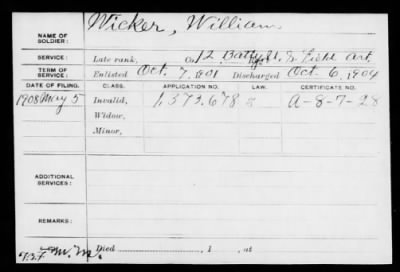 NAME OF SOLDIER: Wicker, William
SERVICE: Late rank, Co. 12 Batty U. S. Field Art.
TERM OF SERVICE: Enlisted Oct. 7, 1901 Discharged Oct. 6, 1904
DATE OF FILING. CLASS. APPLICATION NO. LAW. CERTIFICATE NO.
1908 May 5 Invalid, 1,373,678 A-8-7-28
Widow,
Minor,
ADDITIONAL SERVICES:
REMARKS:
Died , 1 , at